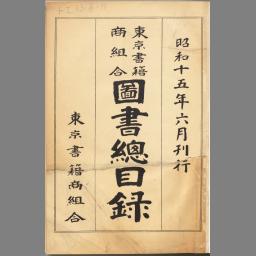 昭和十五年六月刊行
東京書籍
商組合
圖書總目録
東京書籍商組合